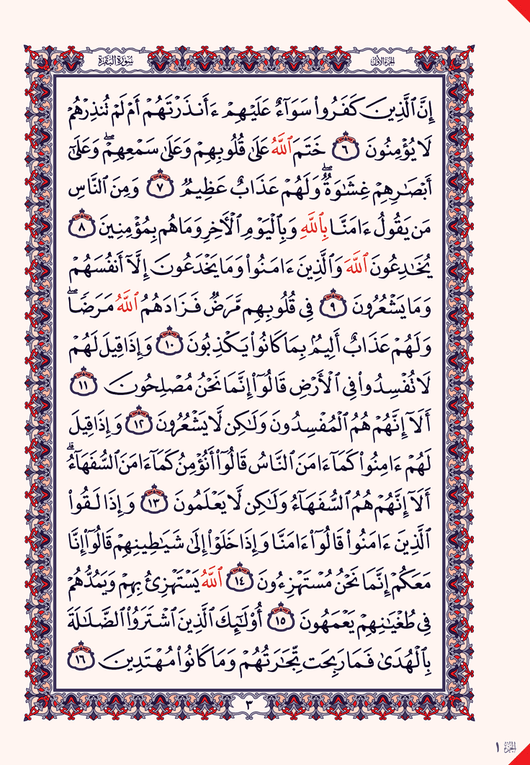 سُورَةُ البَقَرَةِ
الجزء الأول
إِنَّ ٱلَّذِينَ كَفَرُوا۟ سَوَآءٌ عَلَيْهِمْ ءَأَنذَرْتَهُمْ أَمْ لَمْ تُنذِرْهُمْ
لَا يُؤْمِنُونَ ٦ خَتَمَ ٱللَّهُ عَلَىٰ قُلُوبِهِمْ وَعَلَىٰ سَمْعِهِمْ ۖ وَعَلَىٰٓ
أَبْصَـٰرِهِمْ غِشَـٰوَةٌ ۖ وَلَهُمْ عَذَابٌ عَظِيمٌ ٧ وَمِنَ ٱلنَّاسِ
مَن يَقُولُ ءَامَنَّا بِٱللَّهِ وَبِٱلْيَوْمِ ٱلْـَٔاخِرِ وَمَا هُم بِمُؤْمِنِينَ ٨
يُخَـٰدِعُونَ ٱللَّهَ وَٱلَّذِينَ ءَامَنُوا۟ وَمَا يَخْدَعُونَ إِلَّآ أَنفُسَهُمْ
وَمَا يَشْعُرُونَ ٩ فِى قُلُوبِهِم مَّرَضٌ فَزَادَهُمُ ٱللَّهُ مَرَضًا ۖ
وَلَهُمْ عَذَابٌ أَلِيمٌۢ بِمَا كَانُوا۟ يَكْذِبُونَ ١٠ وَإِذَا قِيلَ لَهُمْ
لَا تُفْسِدُوا۟ فِى ٱلْأَرْضِ قَالُوٓا۟ إِنَّمَا نَحْنُ مُصْلِحُونَ ١١
أَلَآ إِنَّهُمْ هُمُ ٱلْمُفْسِدُونَ وَلَـٰكِن لَّا يَشْعُرُونَ ١٢ وَإِذَا قِيلَ
لَهُمْ ءَامِنُوا۟ كَمَآ ءَامَنَ ٱلنَّاسُ قَالُوٓا۟ أَنُؤْمِنُ كَمَآ ءَامَنَ ٱلسُّفَهَآءُ ۗ
أَلَآ إِنَّهُمْ هُمُ ٱلسُّفَهَآءُ وَلَـٰكِن لَّا يَعْلَمُونَ ١٣ وَإِذَا لَقُوا۟
ٱلَّذِينَ ءَامَنُوا۟ قَالُوٓا۟ ءَامَنَّا وَإِذَا خَلَوْا۟ إِلَىٰ شَيَـٰطِينِهِمْ قَالُوٓا۟ إِنَّا
مَعَكُمْ إِنَّمَا نَحْنُ مُسْتَهْزِءُونَ ١٤ ٱللَّهُ يَسْتَهْزِئُ بِهِمْ وَيَمُدُّهُمْ
فِى طُغْيَـٰنِهِمْ يَعْمَهُونَ ١٥ أُو۟لَـٰٓئِكَ ٱلَّذِينَ ٱشْتَرَوُا۟ ٱلضَّلَـٰلَةَ
بِٱلْهُدَىٰ فَمَا رَبِحَت تِّجَـٰرَتُهُمْ وَمَا كَانُوا۟ مُهْتَدِينَ ١٦
٣
الجزء ١